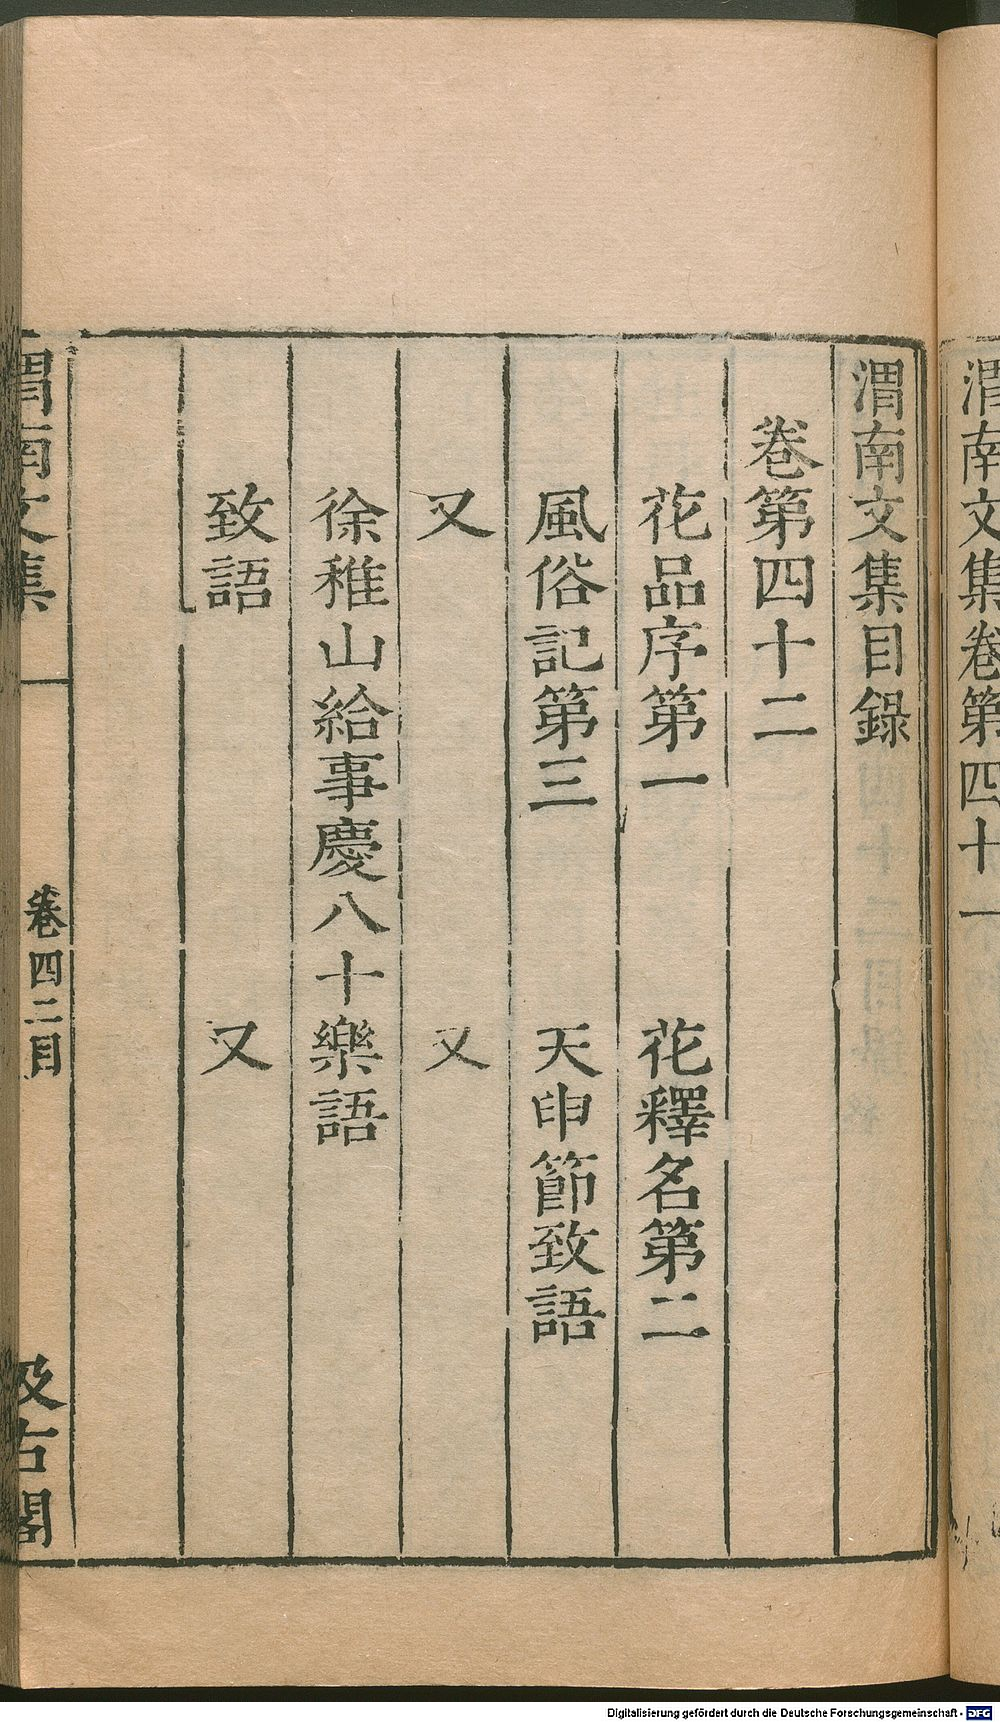 渭南文集卷第四十一
渭南文集目錄
卷第四十二
花品序第一　花釋名第二
風俗記第三　天申節致語
又　又
徐稚山給事慶八十樂語
致語　又
渭南文集　卷四二目　汲古閣
Digitalisierung gefördert durch die Deutsche Forschungsgemeinschaft - DFG